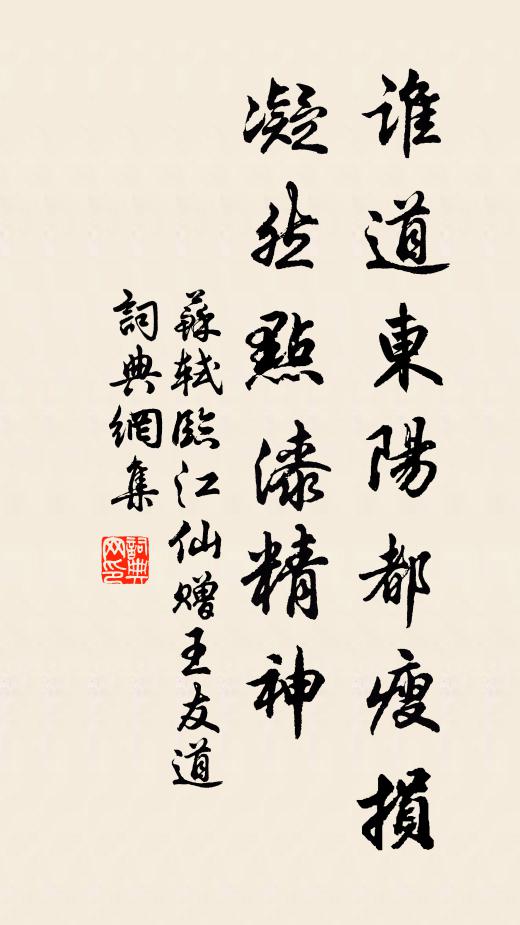 谁道東陽都瘦損
凝然點漆精神
蘇軾臨江仙赠王友道
詞典網集
詞典网印